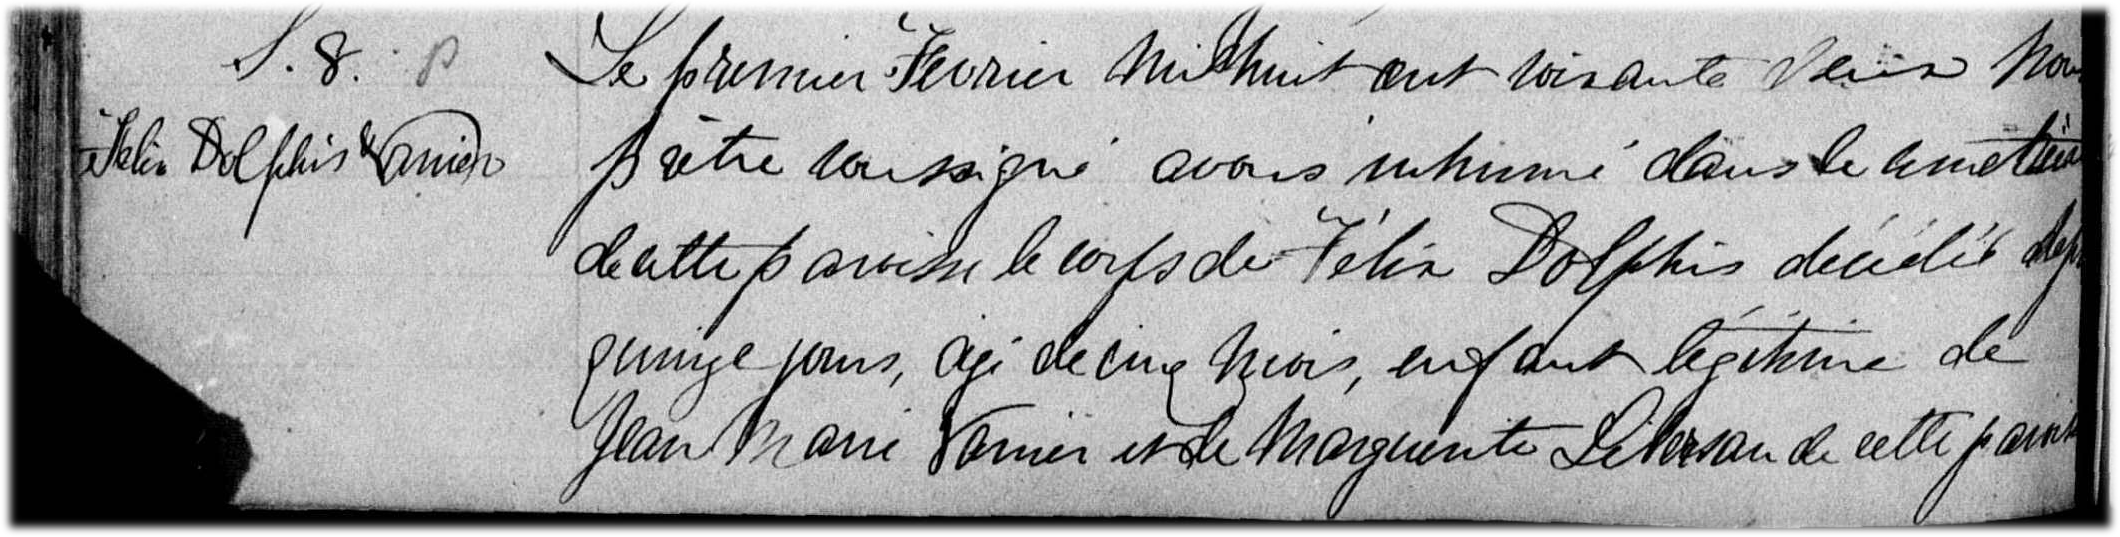 S. 8. p
Félix Dolphis Vanier
Le premier Fevrier Mil huit cent soixante Nous
prêtre soussigné avons inhumé dans le cimetière
de cette paroisse le corps de Félix Dolphis décédé dep
quinze jours, âgé de cinq Mois, enfant légitime de
Jean Marie Vanier et de Marguerite Libersan de cette paroisse